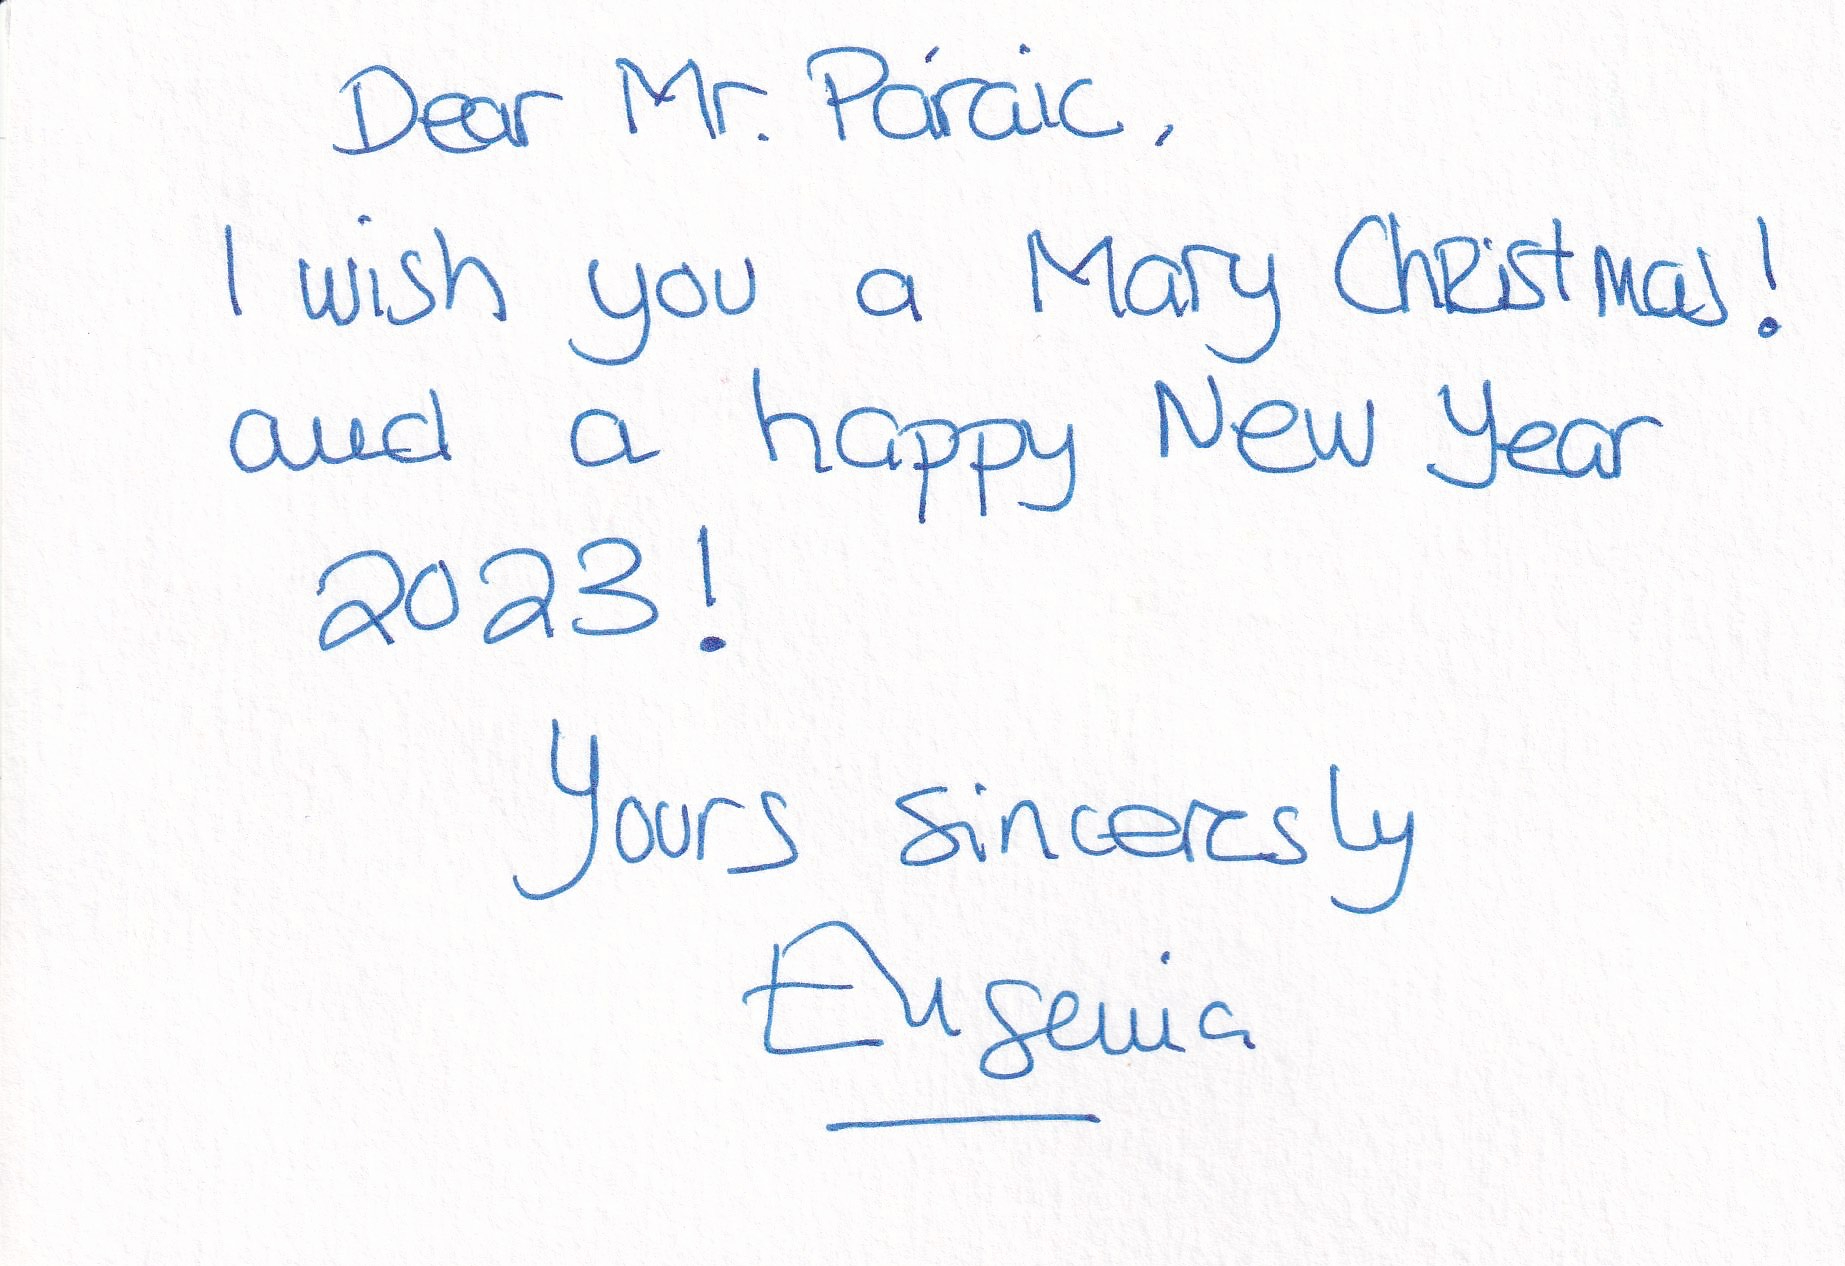 Dear Mr. Páraic,
I wish you a Mary Christmas!
and a happy New Year
2023!
Yours sinceresly
Eugenia